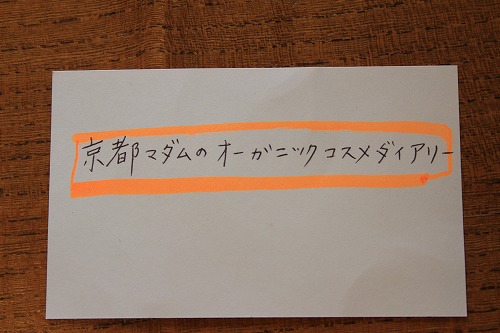 京都マダムのオーガニックコスメダイアリー